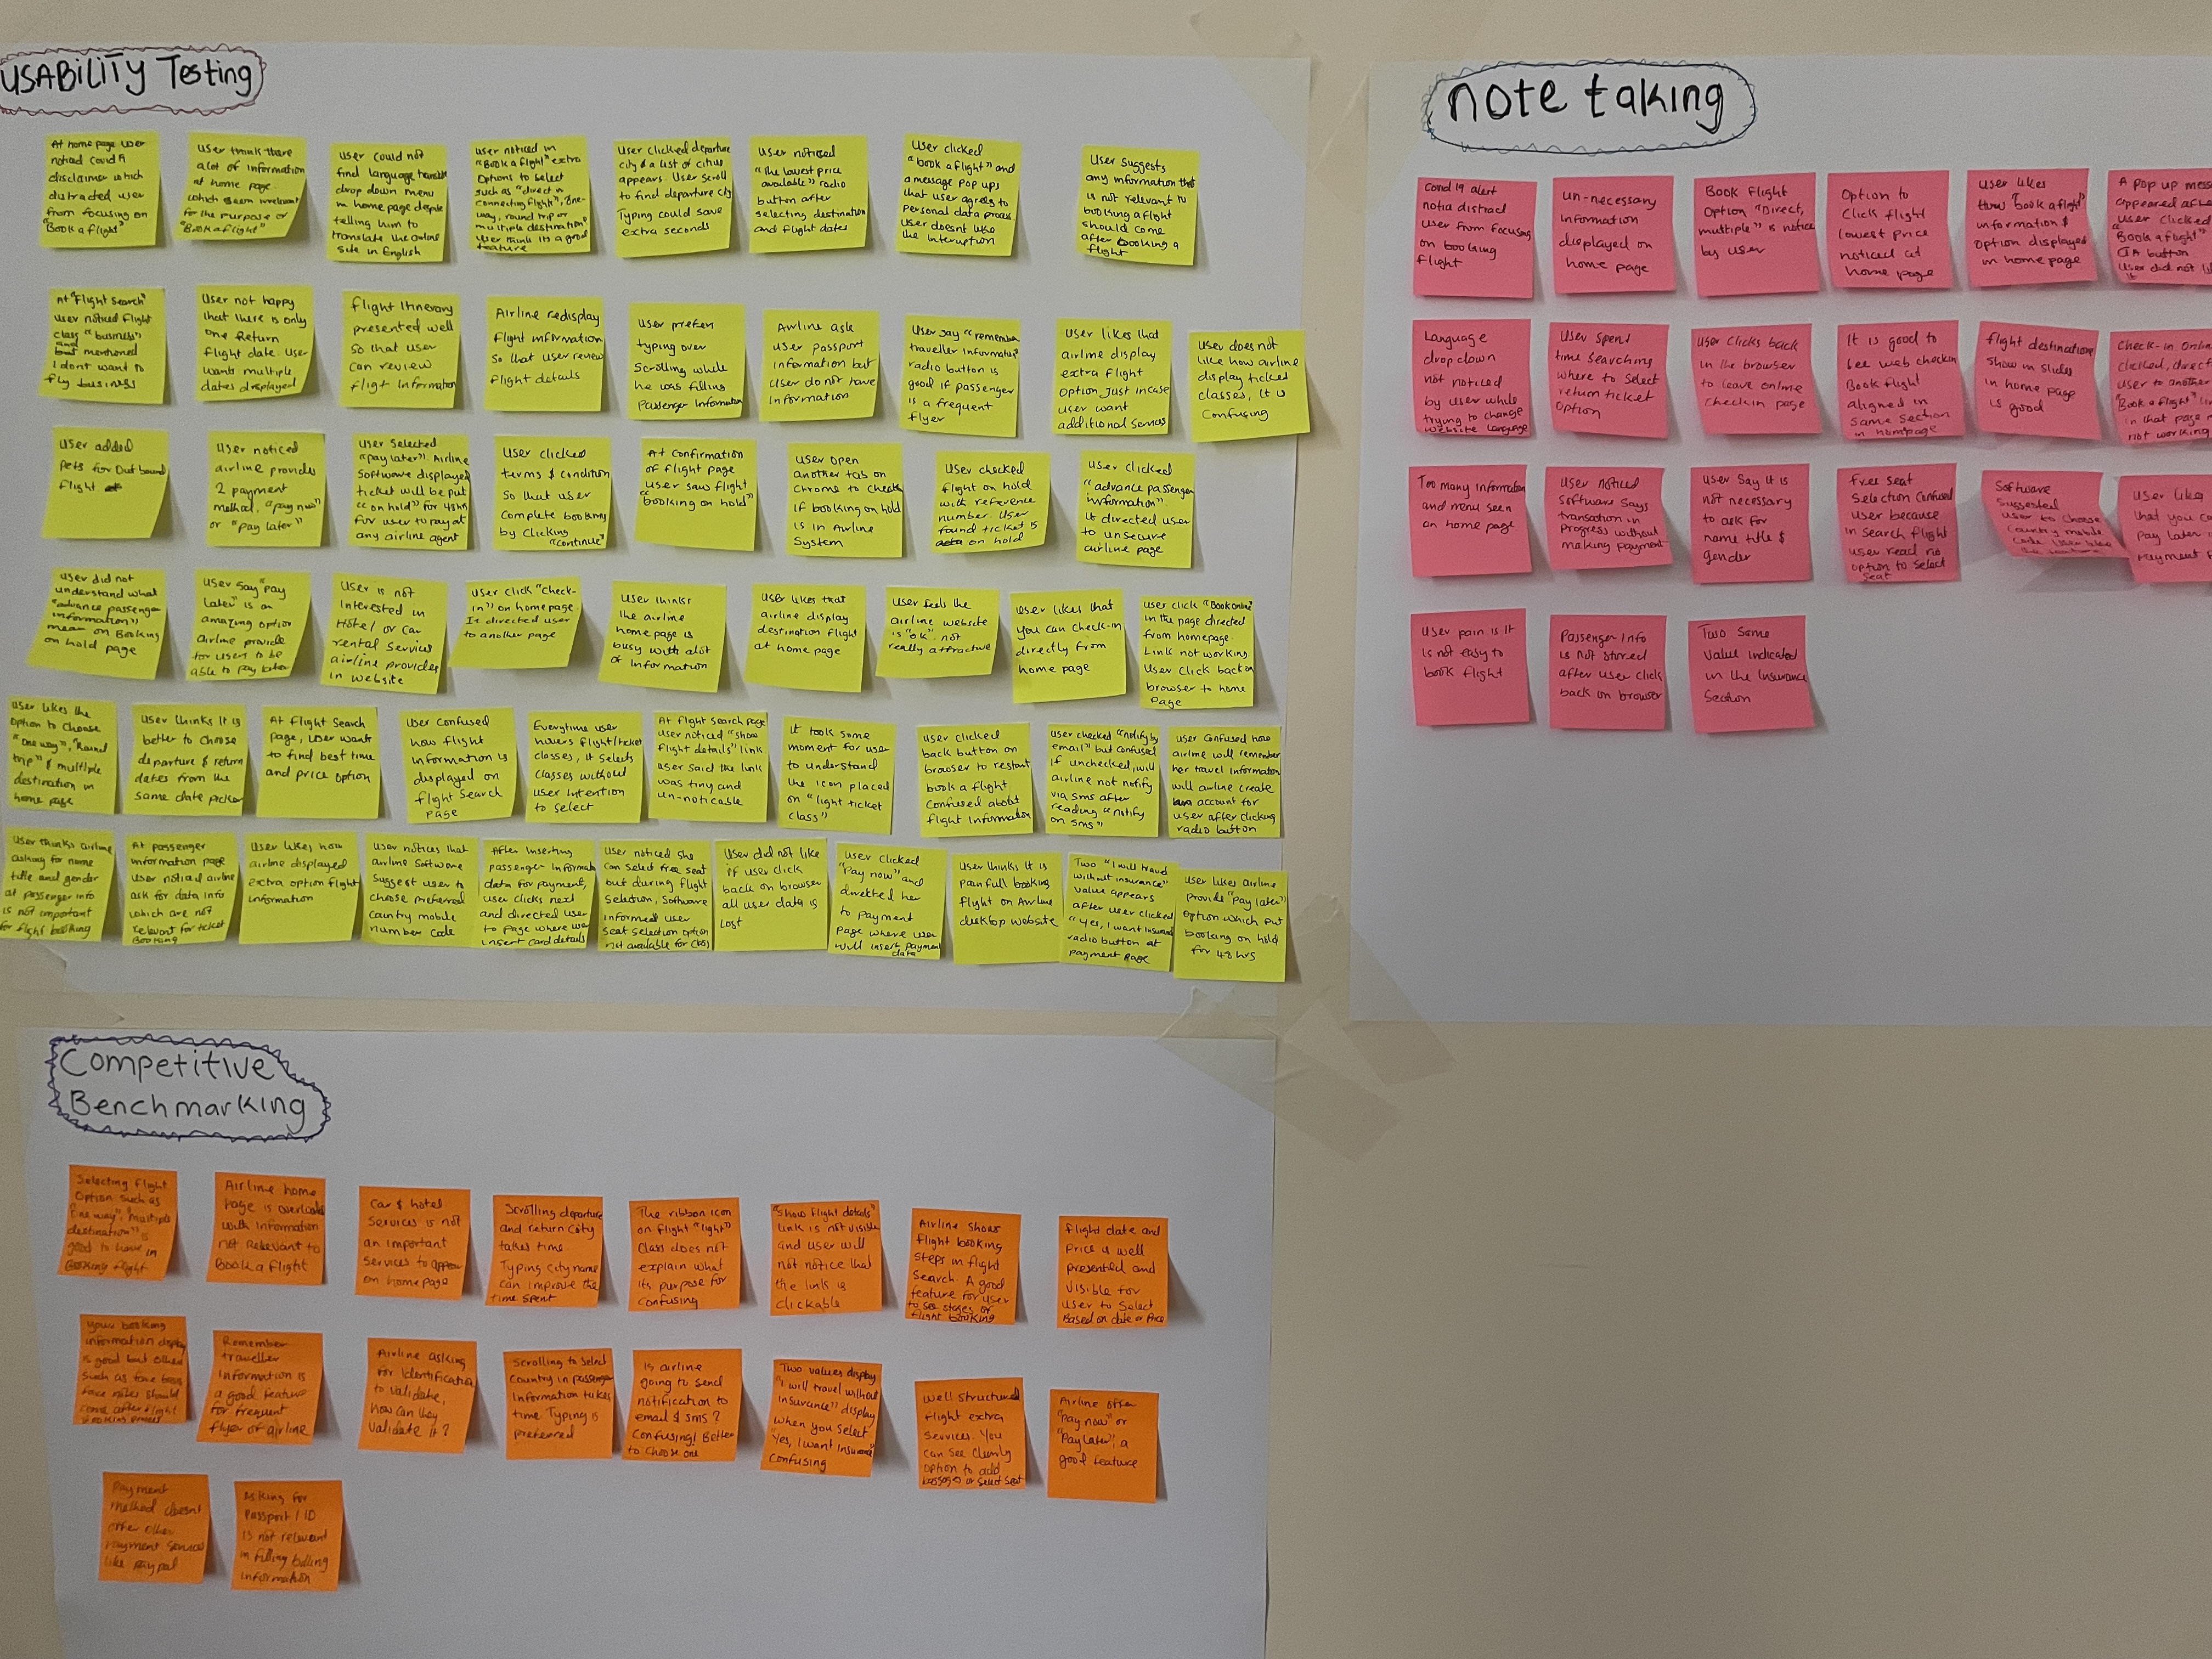 USABILITY Testing
At home page user
noticed covid 19
disclaimer which
distracted user
from focusing on
"Book a flight"
User think there
a lot of information
at home page
which seem irrelevant
for the purpose of
"Book a flight"
User could not
find language translate
drop down menu
in home page despite
telling him to
translate the online
site in English
User noticed in
"Book a flight" extra
Options to select
such as "direct or
connecting flights", One-
way, round trip or
multiple destination"
User think its a good
feature
User clicked departure
city & a list of cities
appears. User scroll
to find departure city
Typing could save
extra seconds
User noticed
"The lowest price
available" radio
button after
selecting destination
and flight dates
User clicked
"book a flight" and
a message Pop ups
that user agrees to
personal data process
User doesnt like
the interuption
User suggests
any information that
is not relevant to
booking a flight
should come
after booking a
flight
At "flight search"
user noticed flight
class "business"
and mentioned
I dont want to
fly business
User not happy
that there is only
one Return
flight date. User
wants multiple
dates displayed
flight Itinerary
presented well
so that user
can review
flight Information
Airline redisplay
flight information
so that user review
flight details
User prefer
typing over
Scrolling while
he was filling
Passenger Information
Airline ask
user passport
information but
User do not have
Information
User say "remember
traveller Information"
radio button is
good if passenger
is a frequent
flyer
User likes that
airline display
extra flight
option Just incase
user want
additional services
User does not
like how airline
display ticket
classes, it is
Confusing
User added
Pets for Out bound
flight
User noticed
airline provides
2 payment
method, "pay now"
or "Pay later"
User Selected
"pay later". Airline
Software displayed
ticket will be put
"on hold" for 48hrs
for user to pay at
any airline agent
User clicked
terms & condition
so that user
Complete booking
by clicking
"continue"
At confirmation
of flight page
user saw flight
"booking on hold"
User open
another tab on
Chrome to check
if booking on hold
is in Airline
System
User checked
flight on hold
with reference
number. User
found ticket is
on hold
User clicked
"advance passenger
information".
it directed user
to unsecure
airline page
User did not
understand what
"advance passenger
information"
mean on Booking
on hold page
User say "pay
later" is an
amazing option
airline provide
for user to be
able to pay later
User is not
Interested in
Hotel or Car
rental services
airline provides
in website
User click "check-
in" on homepage.
It directed user
to another page
User thinks
the airline
home page is
busy with alot
of Information
User likes that
airline display
destination flight
at home page
User feels the
airline website
is "ok". not
really attractive
User likes that
you can check-in
directly from
home page
User click "Book online"
in the page directed
from homepage.
Link not working.
User click back on
browser to home
Page
User likes the
Option to choose
"One way", "Round
trip" & multiple
destination in
home page
User thinks It is
better to choose
departure & return
dates from the
same date picker
At flight Search
page, User wants
to find best time
and price option
User confused
how flight
information is
displayed on
flight Search
page
Everytime user
hovers flight/ticket
classes, it selects
Classes without
user Intention
to select
At flight search page
User noticed "show
flight details" link
User said the link
was tiny and
un-noticable
It took some
moment for user
to understand
the icon placed
on "light ticket
class"
User clicked
back button on
browser to restart
book a flight
Confused about
flight information
User checked "notify by
email" but confused
if unchecked, will
airline not notify
via sms after
reading "notify
on sms"
User Confused how
airline will remember
her travel Information
will airline create
account for
user after clicking
radio button
User thinks airline
asking for name
title and gender
at passenger info
is not important
for flight booking
At passenger
information page
User noticed airline
ask for data info
which are not
relevant for ticket
Booking
User likes how
airline displayed
extra option flight
information
User notices that
airline Software
suggest user to
choose preferred
Country mobile
number code
After Inserting
passenger Information
data for payment,
user clicks next
and directed user
to page where user
insert card details
User noticed she
Can select free seat
but during flight
Selection, Software
informed user
seat selection option
not available for class
User did not like
if user click
back on browser
all user data is
Lost
User clicked
"Pay now" and
directed her
to payment
page where user
will insert payment
data
User thinks It is
painfull booking
flight on Airline
desktop website
Two "I will travel
without insurance"
value appears
after user clicked
"yes, I want insurance
radio button at
payment page
User likes airline
provide "Pay later"
Option which put
booking on hold
for 48 hrs
note taking
Covid 19 alert
notia distract
user from focusing
on booking
flight
un-necessary
Information
displayed on
home page
Book flight
Option "Direct,
multiple" is notice
by user
Option to
Click flight
lowest price
noticed at
home page
User likes
how "book a flight"
information &
Option displayed
in home page
A pop up message
appeared after
user clicked
"Book a flight"
CTA button.
User did not
Language
drop down
not noticed
by user while
trying to change
website language
User spend
time searching
where to select
return ticket
Option
User clicks back
in the browser
to leave online
checkin page
It is good to
see web checkin
Book flight
aligned in
same section
in homepage
flight destinations
show in slides
in home page
is good
Check-in Online
clicked, direct
user to another
"Book a flight"
in that page
not working
Too many Information
and menu seen
on home page
User noticed
Software says
transation in
Progress without
making payment
User say It is
not necessary
to ask for
name title &
gender
Free seat
Selection confused
user because
in search flight
user read no
option to select
seat
Software
Suggested
user to choose
Country mobile
User likes
that you
Pay later
Payment
User pain is it
is not easy to
book flight
Passenger Info
is not stored
after user click
back on browser
Two Same
Value indicated
in the Insurance
Section
Competitive
Benchmarking
Selecting flight
Option such as
"One way", "multiple
destination" is
good to have in
Booking flight
Airline home
page is overloaded
with information
not Relevant to
Book a flight
Car & hotel
Services is not
an important
Services to appear
on home page
Scrolling departure
and return city
takes time
Typing city name
can improve the
time spent
The ribbon icon
on flight "light"
Class does not
explain what
its purpose for
Confusing
"Show flight details"
link is not visible
and user will
not notice that
the link is
clickable
Airline shows
flight booking
steps in flight
Search. A good
feature for user
to see stages of
flight booking
flight date and
Price is well
presented and
visible for
user to Select
Based on date or Price
your booking
information display
is good but other
such as
should
come after flight
Booking process
Remember
traveller
Information is
a good feature
for frequent
flyer of airline
Airline asking
for Identification
to validate,
how can they
validate it?
Scrolling to select
Country in passenger
Information takes
time. Typing is
preferred
Is airline
going to send
notification to
email & sms?
Confusing! Better
to choose one
Two values display
"I will travel without
insurance" display
when you select
"Yes, I want Insurance"
Confusing
Well structured
flight extra
Services. You
can see clearly
option to add
or select seat
Airline offer
"Pay now" or
"Pay later", a
good feature
Payment
method doesnt
offer other
Payment services
like Paypal
Asking for
Passport / ID
is not relevant
in filling billing
information